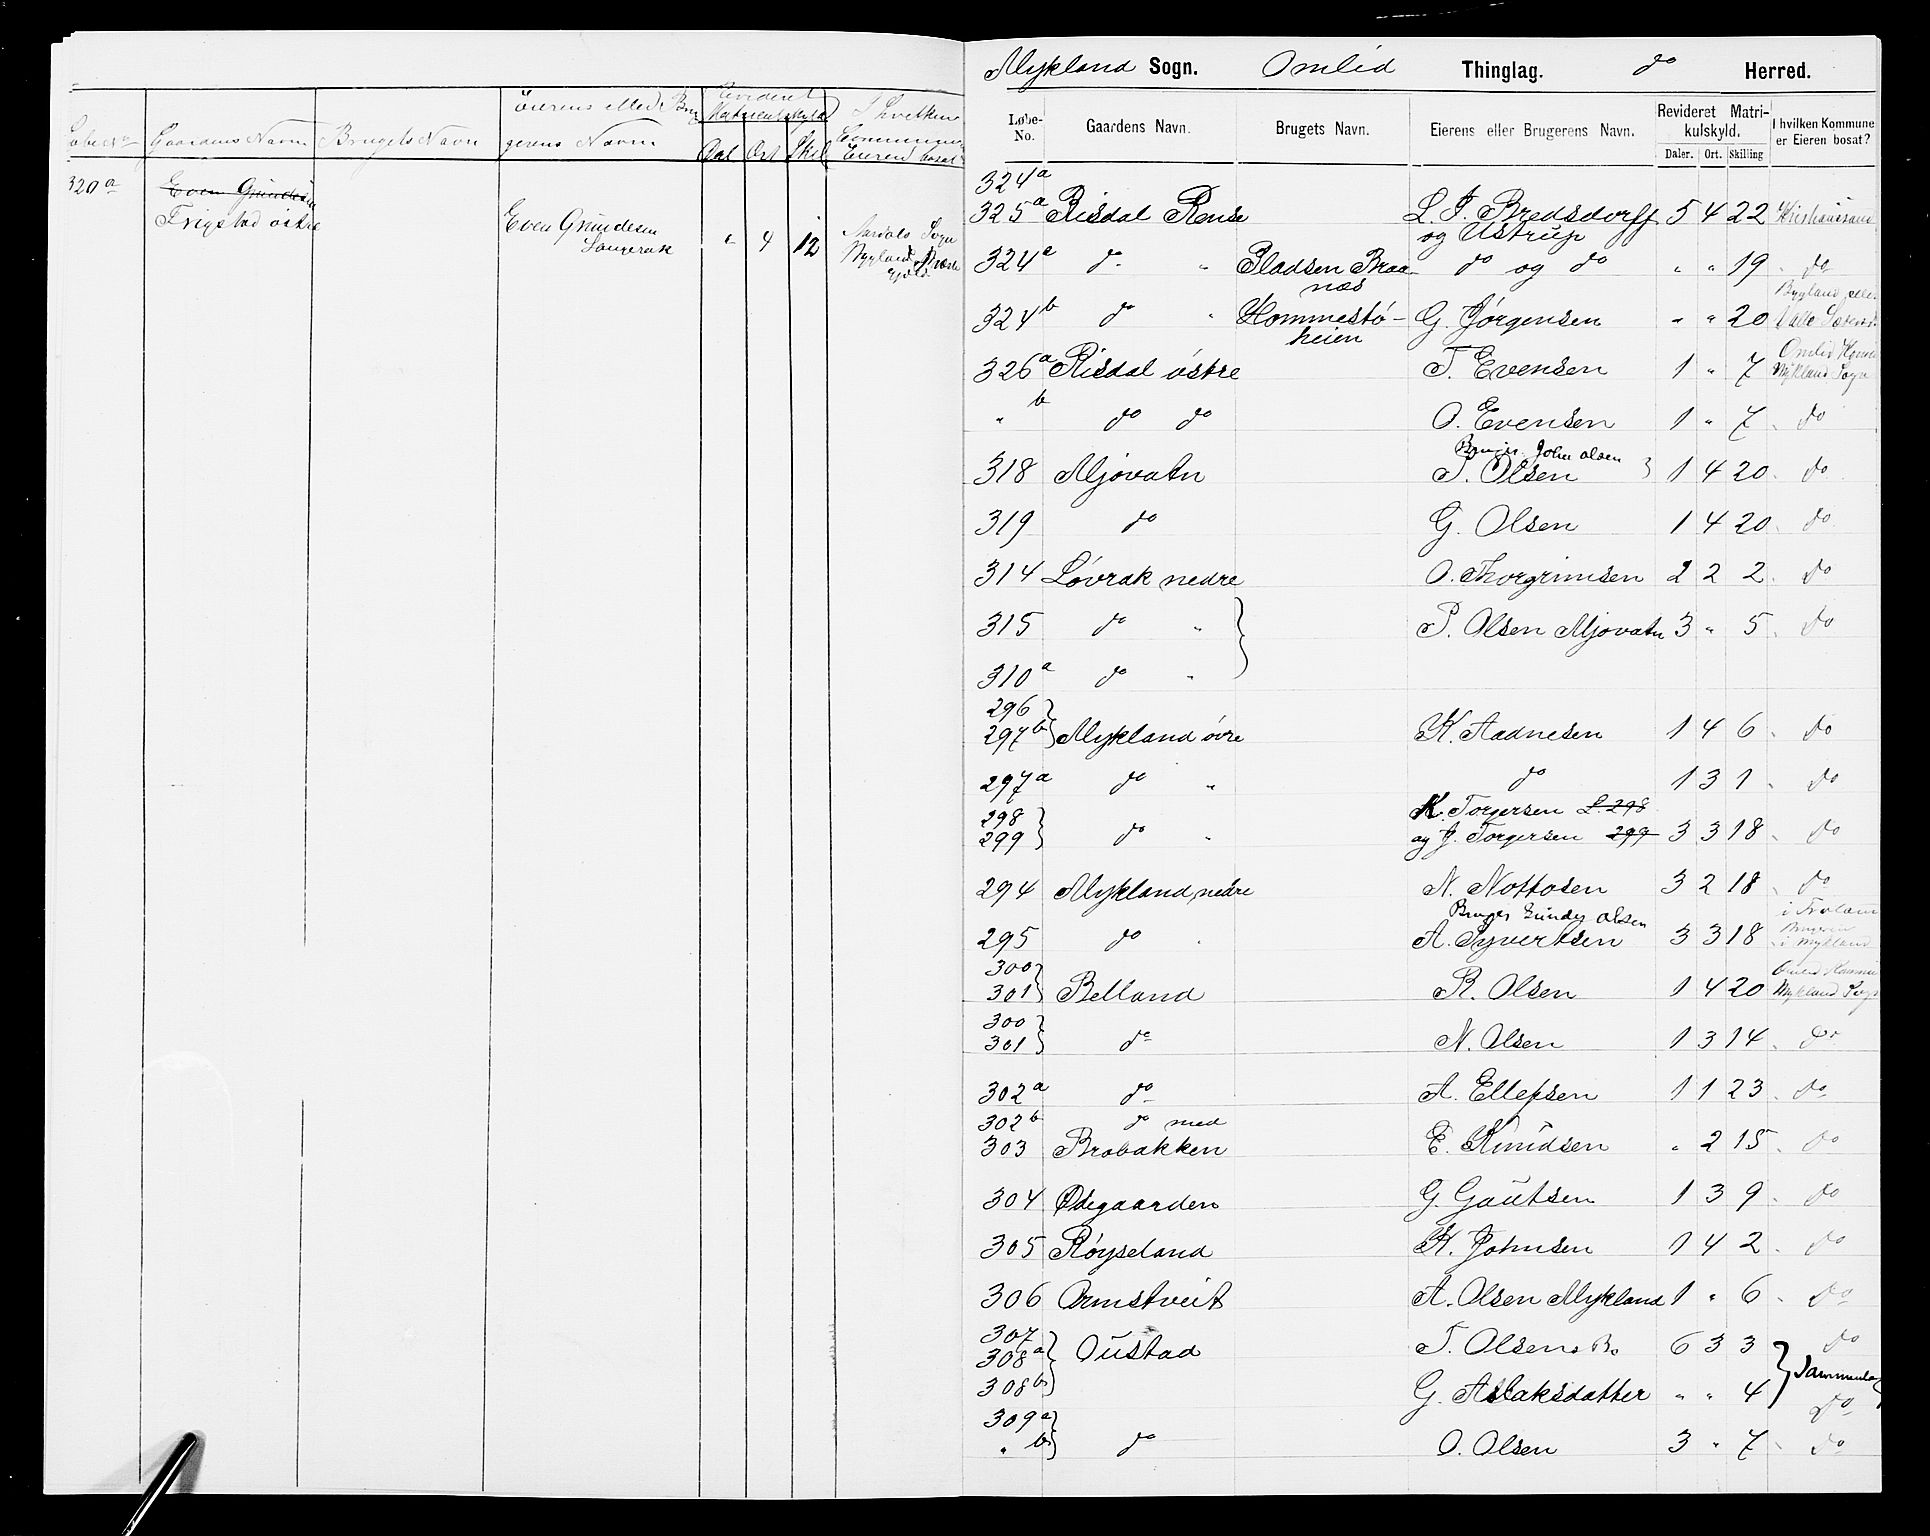 Løbe No Gaardens Navn Brugets Navn Eierens eller Brugerens Navn Revideret Matriculskyld Dal Ort Skil I hvilken Commune Eieren bosat
320a Even Grundesen
Frigstad østre Even Grundesen Sangerak " 4 12
Mykland Sogn. Omlid Thinglag. do Herred.
Løbe-No. Gaardens Navn. Brugets Navn. Eierens eller Brugerens Navn. Revideret Matrikulskyld. Daler. Ort. Skilling I hvilken Kommune er Eieren bosat?
324a
325a Risdal Rense L. J. Bredsdorff og Ustrup 5 4 22 Kristiansand
324a do " Pladsen Braanæs do og do " " 19 do
324b do " Hommestøheien G. Jørgensen " " 20 Bygland eller Valle
326a Risdal østre T. Evensen 1 " 7 Omlid Mykland Sogn
" b do do O. Evensen 1 " 7 " do
Bruger John Olsen
318 Mjovatn T. Olsen 1 4 20 do
319 do G. Olsen 1 4 20 do
314 Løvrak nedre O. Thorgrimsen 2 2 2 do
315 do " P. Olsen Mjovatn 3 " 5 do
310a do "
296
297b Mykland øvre K. Aadnesen 1 4 6 do
297a do " do 1 3 1 do
298 K. Torgersen L. 298
299 do " og J. Torgersen 299 3 3 18 do
294 Mykland nedre N. Nottosen 3 2 18 do
Bruger Gunder Olsen i Froland
295 do " A. Syvertsen 3 3 18 Brugeren i Mykland
300
301 Belland R. Olsen 1 4 20 Omlid Mykland Sogn
300
301 do N. Olsen 1 3 14 do
302a do A. Ellefsen 1 1 23 do
302b do med
303 Brobakken E. Knudsen " 2 15 do
304 Ødegaarden G. Gautsen 1 3 9 do
305 Røyseland K. Johnsen 1 4 2 do
306 Ormstveit A. Olsen Mykland 1 " 6 do
307
308a Oustad T. Olsen 6 3 3 do
308b G. Aslaksdatter " " 4 Sammenlag do
309a
" b do O. Olsen 3 " 7 do